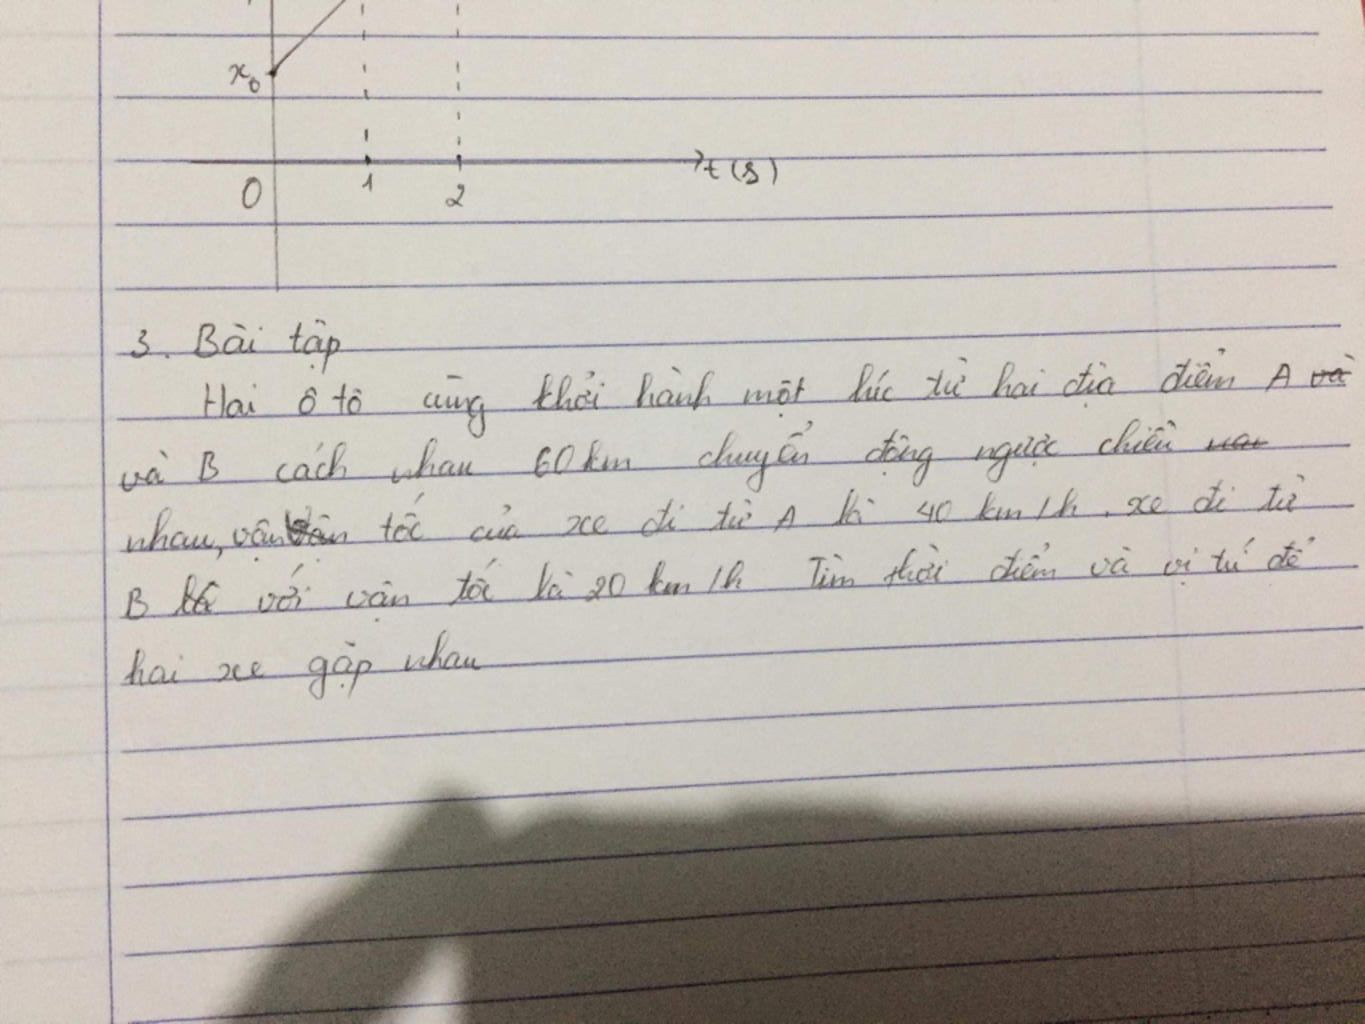 x₀
t (s)
0 1 2
3. Bài tập
Hai ô tô cùng khởi hành một lúc từ hai địa điểm A và
và B cách nhau 60 km chuyển động ngược chiều
nhau, vận tốc của xe đi từ A là 40 km/h. xe đi từ
B với vận tốc là 20 km/h Tìm thời điểm và vị trí để
hai xe gặp nhau